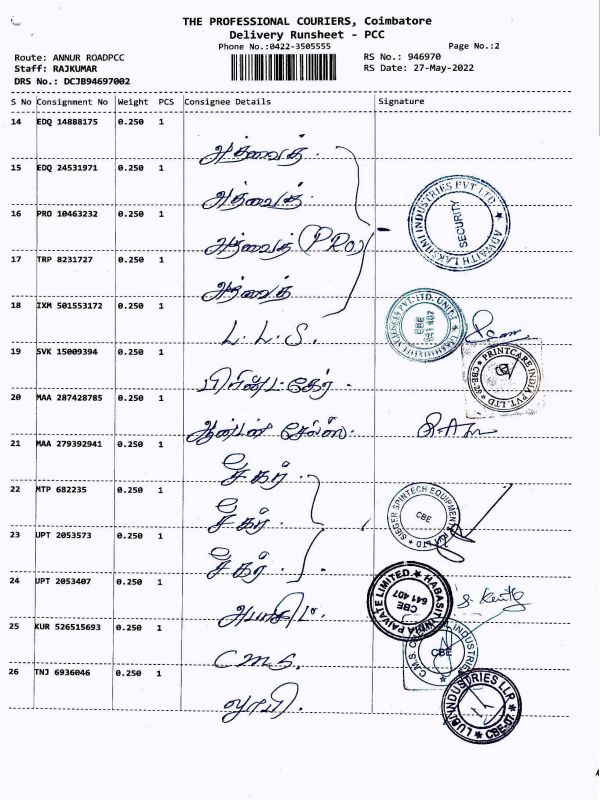 THE PROFESSIONAL COURIERS, Coimbatore
Delivery Runsheet - PCC
Phone No.:0422-3505555
Page No.:2
Route: ANNUR ROADPCC
RS No.: 946970
Staff: RAJKUMAR
RS Date: 27-May-2022
DRS No.: DCJB94697002
S No Consignment No Weight PCS Consignee Details Signature
14 EDQ 14888175 0.250 1
அத்வைத்
15 EDQ 24531971 0.250 1
அத்வைத்
16 PRO 10463232 0.250 1
அத்வைத் (PRO)
17 TRP 8231727 0.250 1
அத்வைத்
ADWAITH LAKSHMI INDUSTRIES PVT LTD.
SECURITY
18 IXM 501553172 0.250 1
L.L.S.
19 SVK 15009394 0.250 1
பிரிண்ட கேர்
PRINTCARE INDIA PVT. LTD
20 MAA 287428785 0.250 1
21 MAA 279392941 0.250 1
22 MTP 682235 0.250 1
23 UPT 2053573 0.250 1
SIEGER SPINTECH EQUIPMENTS
CBE
24 UPT 2053407 0.250 1
HABASIT INDIA PAIVATE LIMITED
CBE
641 407
25 KUR 526515693 0.250 1
C.M.S.
CBE
INDUSTRIES
26 TNJ 6936046 0.250 1
INDUSTRIES LLP
CBE-07